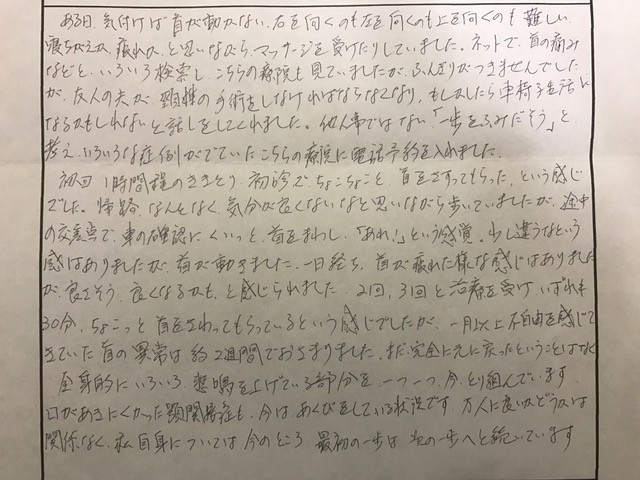 ある日、気付けば首が動かない。右を向くのも左を向くのも上を向くのも難しい。
寝ちがえか、疲れか、と思いながらマッサージを受けたりしていました。ネットで、首の痛み
などと、いろいろ検索し、こちらの療院も見ていましたが、ふんぎりがつきませんでした
が、友人の夫が、頸椎の手術をしなければならなくなり、もしかしたら車椅子生活に
なるかもしれないと話しをしてくれました。他人事ではない「一歩をふみだそう」と
考え、いろいろな症例がでていたこちらの療院に電話予約を入れました。
初回 1時間程のききとり、初診で、ちょこちょこと、首をさすってもらった、という感じ
でした。帰路、なんとなく、気分が良くないなと思いながら歩いていましたが、途中
の交差点で、車の確認に、くいっと、首をまわし、「あれ!」という感覚。少し違うなという
感はありましたが、首が動きました。一日経ち、首が疲れた様な感じはありました
が、良さそう、良くなるかも、と感じられました。2回、3回と治療を受け、いずれも
30分、ちょこっと首をさわってもらっているという感じでしたが、一月以上不自由を感じて
きていた首の異常は約2週間でおさまりました。まだ完全に元に戻ったということはなく
全身的にいろいろ、悲鳴を上げている部分を、一つ一つ、今、とり組んでいます。
口があきにくかった顎関節症も、今は、あくびをしている状況です。万人に良いかどうかは
関係なく、私自身については今のところ 最初の一歩は 次の一歩へと続いています